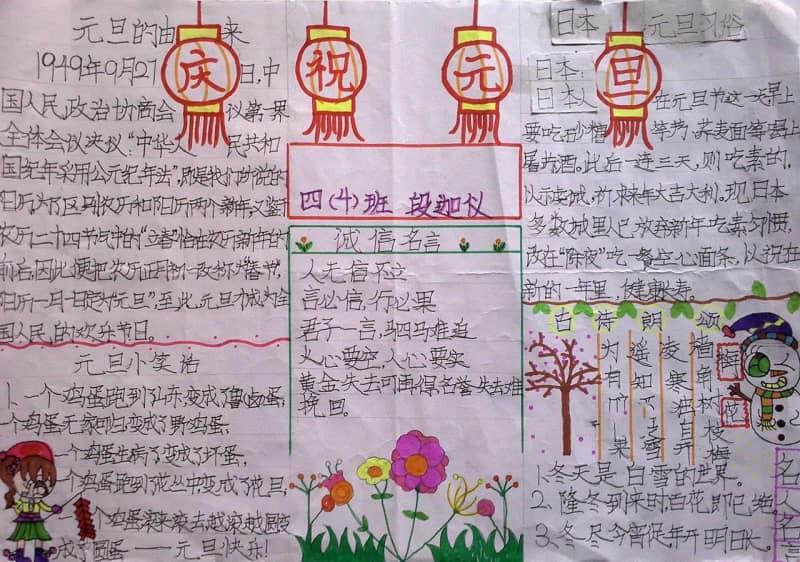 庆祝元旦
元旦的由来
1949年9月27日,中
国人民政治协商会议第一界
全体会议决议:“中华人民共和
国纪年采用公元纪年法”,即是我们所说的
阳历,为了区别农历和阳历两个新年,又鉴
农历二十四节气中的“立春”恰在农历新年的
前后,因此便把农历正月初一改称为“春节”,
阳历一月一日定为“元旦”,至此,元旦才成为全
国人民的欢乐节日。
元旦小笑话
1、一个鸡蛋跑到了山东,变成了鲁(卤)蛋,
一个鸡蛋无家可归变成了野鸡蛋,
一个鸡蛋生病了变成了坏蛋,
一个鸡蛋跑到了花丛中变成了花旦,
一个鸡蛋滚来滚去越滚越圆变
成了圆蛋——元旦快乐!
四(4)班 段迦仪
诚信名言
人无信不立
言必信,行必果
君子一言,驷马难追
火心要空,人心要实
黄金失去可再得,名誉失去难
挽回。
日本 元旦习俗
日本:
日本人在元旦节这一天早上
要吃砂糖竽艿、荞麦面等,晚上
屠苏酒。此后一连三天,则吃素的,
以示虔诚,祈求来年大吉大利。现日本
多数城里人已放弃新年吃素习惯,
改在“除夜”吃一餐空心面条,以祝在
新的一年里 健康长寿。
古诗朗颂
墙角数枝梅
凌寒独自开
遥知不是雪
为有
1.冬天是白雪的世界。
2、隆冬到来时,百花即已绝。
3、冬尽今宵促,年开明日长。
名人名言